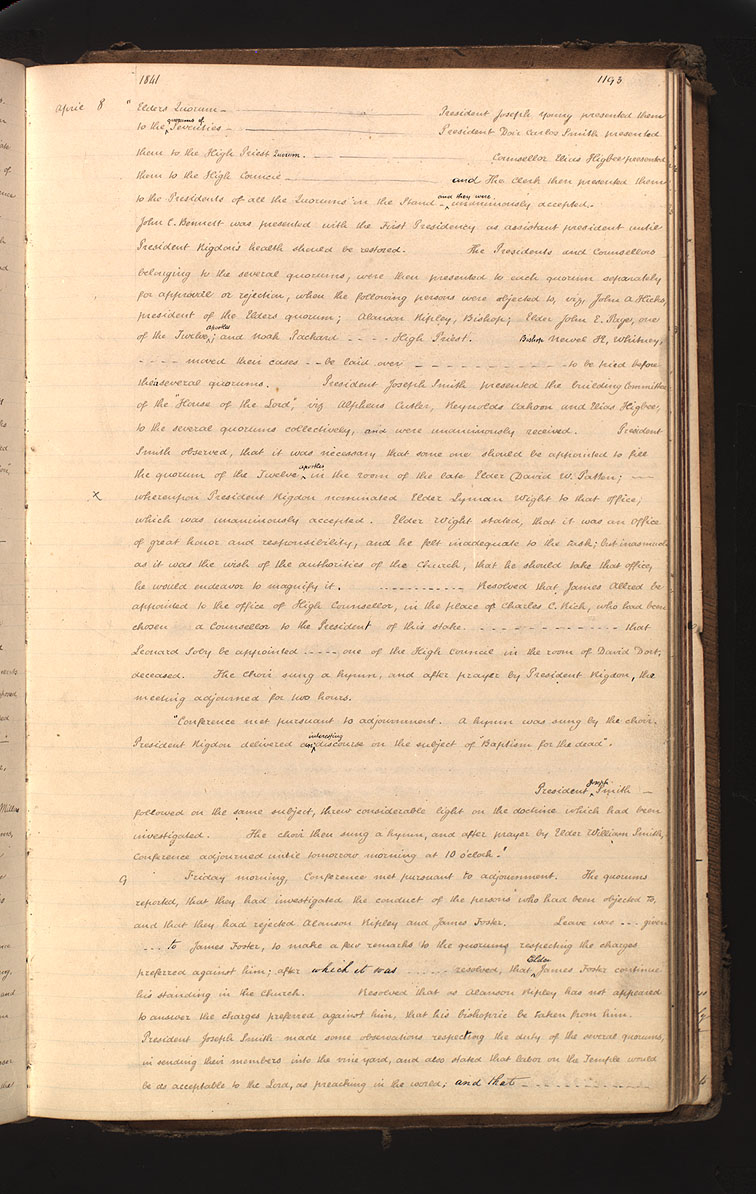 1841 1193
April 8 " Elders Quorum — President Joseph Young presented them
to the quorums of Seventies — President Don Carlos Smith presented
them to the High Priest Quorum. — Counsellor Elias Higbee presented
them to the High Council — and The clerk then presented them
to the Presidents of all the Quorums in the Stand — and they were unanimously accepted.
John C. Bennett was presented with the First Presidency as assistant president until
President Rigdon's health should be restored. The Presidents and Counsellors
belonging to the several quorums, were then presented to each quorum separately
for approval or rejection, when the following persons were objected to, viz, John A Hicks,
president of the Elders quorum; Alanson Ripley, Bishop; Elder John E. Page, one
of the Twelve apostles; and Noah Packard - - - - High Priest. Bishop Newel K, Whitney,
- - - - moved their cases - - be laid over - - - - to be tried before
their several quorums. President Joseph Smith presented the building Committee
of the "House of the Lord", viz Alpheus Cutler, Reynolds Cahoon and Elias Higbee,
to the several quorums collectively, and were unanimously received. President
Smith observed, that it was necessary that some one should be appointed to fill
the quorum of the Twelve apostles in the room of the late Elder David W. Patten; —
X whereupon President Rigdon nominated Elder Lyman Wight to that office;
which was unanimously accepted. Elder Wight stated, that it was an office
of great honor and responsibility, and he felt inadequate to the task; but inasmuch
as it was the wish of the authorities of the church, that he should take that office,
he would endeavor to magnify it. - - - - Resolved that James Allred be
appointed to the office of High Counsellor, in the place of Charles C. Rich, who had been
chosen a Counsellor to the President of this stake. - - - - that
Leonard Soby be appointed - - - - one of the High Council in the room of David Dort,
deceased. The choir sung a hymn, and after prayer by President Rigdon, the
meeting adjourned for two hours.
"Conference met pursuant to adjournment. A hymn was sung by the choir.
President Rigdon delivered an interesting discourse on the subject of "Baptism for the dead".
President Joseph Smith —
followed on the same subject, threw considerable light on the doctrine which had been
investigated. The choir then sung a hymn, and after prayer by Elder William Smith,
Conference adjourned until tomorrow morning at 10 o'clock."
9 Friday morning, Conference met pursuant to adjournment. The quorums
reported, that they had investigated the conduct of the persons who had been objected to,
and that they had rejected Alanson Ripley and James Foster. Leave was - - - given
- - - to James Foster, to make a few remarks to the quorums respecting the charges
preferred against him; after which it was - - - - resolved, that Elder James Foster continue
his standing in the Church. Resolved that as Alanson Ripley has not appeared
to answer the charges preferred against him, that his bishopric be taken from him.
President Joseph Smith made some observations respecting the duty of the several quorums,
in sending their members into the vineyard, and also stated that labor on the Temple would
be as acceptable to the Lord, as preaching in the world; and that - - - -